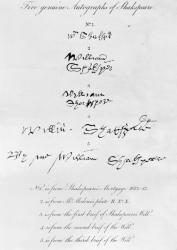 Five genuine Autographs of Shakspeare.
Nº 1.
2
William
3
William
4
5
By me William
Nº 1. is from Shakspeare's Mortgage 1612-13.
2. is from Mr. Malone's plate II. Nº X.
3. is from the first brief of Shakspeare's Will.
4. is from the second brief of the Will.
5. is from the third brief of the Will.